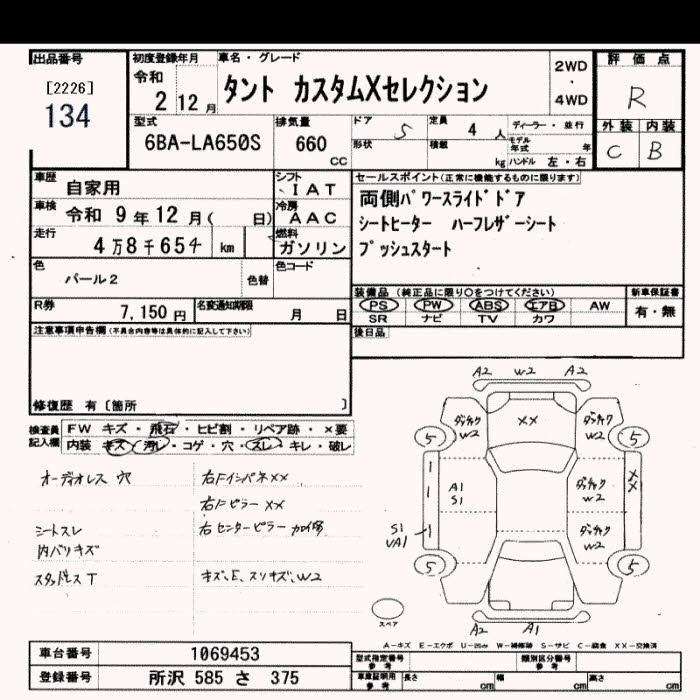 出品番号
[2226]
134
初度登録年月
令和
2 12月
車名・グレード
タント カスタムXセレクション
2WD
・
4WD
評価点
R
外装 内装
C B
型式
6BA-LA650S
排気量
660
CC
ドア 5
定員 4 人
ディーラー・並行
形状
積載 kg
モデル年式 年
ハンドル 左・右
車歴 自家用
シフト IAT
車検 令和 9年12月( 日)
冷房 AAC
走行 4万8千654 km
燃料 ガソリン
セールスポイント(正常に機能するものに限ります)
両側パワースライドドア
シートヒーター ハーフレザーシート
プッシュスタート
色 パール2
色替
色コード
R券 7,150円
名変通知期限 月 日
装備品 (純正品に限り○をつけてください)
PS PW ABS エアB AW
SR ナビ TV カワ
新車保証書
有・無
後日品
注意事項申告欄(不具合内容等は具体的に記入して下さい)
修復歴 有〔箇所 〕
検査員記入欄
FW キズ・飛石・ヒビ割・リペア跡・×要
内装 キズ・汚レ・コゲ・穴・スレ・キレ・破レ
オーディオレス 穴
右Fインパネ××
右Fピラー××
シートスレ
右センターピラー 加修
内バリキズ
スタッドレスT
キズ、E、スリキズ、W2
A2 W2 A2
××
W2
W2
5 5
A1
S1
W2
××
S1
UA1
W2
5 5
スペア
A2 A1
A-キズ E-エクボ U-凹み W-補修跡 S-サビ C-腐食 XX-交換済
車台番号 1069453
登録番号 所沢 585 さ 375
型式指定番号 参考
類別区分番号 参考
車庫証明用 参考
長さ cm 幅 cm 高さ cm